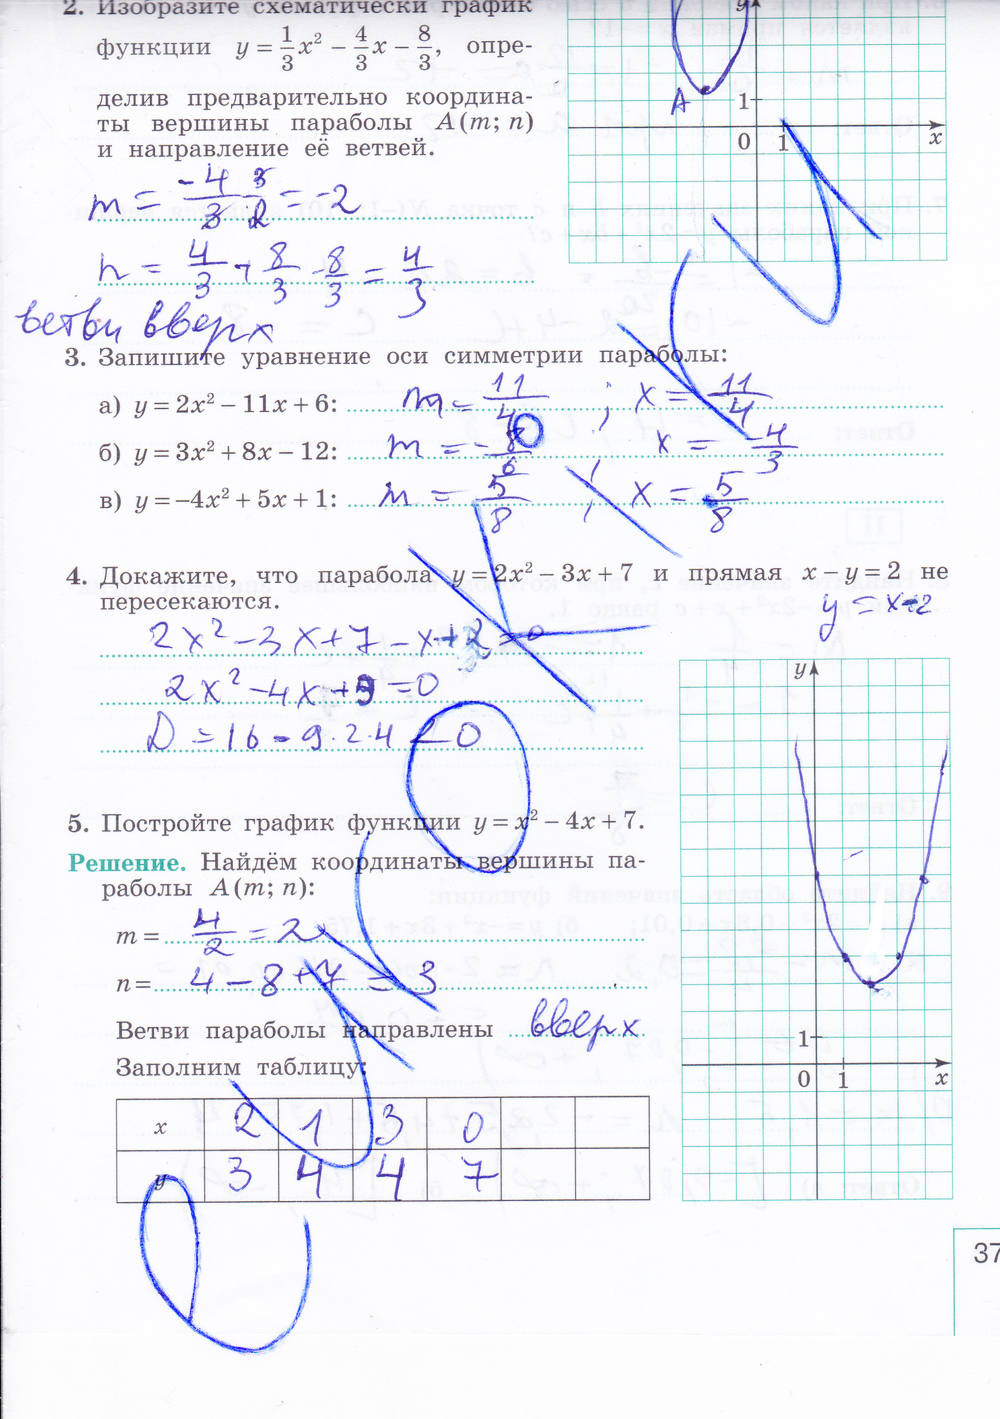 2. Изобразите схематически график
функции y = 1/3 x² − 4/3 x − 8/3, опре-
делив предварительно координа-
ты вершины параболы A(m; n)
и направление её ветвей.
m = -4·3/3·2 = -2
n = 4/3 + 8/3 - 8/3 = 4/3
ветви вверх
y
A
1
0 1 x
3. Запишите уравнение оси симметрии параболы:
а) y = 2x² − 11x + 6: m = 11/4 ; x = 11/4
б) y = 3x² + 8x − 12: m = -8/6 ; x = -4/3
в) y = −4x² + 5x + 1: m = 5/8 ; x = 5/8
4. Докажите, что парабола y = 2x² − 3x + 7 и прямая x − y = 2 не
пересекаются.
y = x-2
2x² - 3x + 7 - x + 2 = 0
2x² - 4x + 9 = 0
D = 16 - 9·2·4 < 0
5. Постройте график функции y = x² − 4x + 7.
Решение. Найдём координаты вершины па-
раболы A(m; n):
m = 4/2 = 2
n = 4 - 8 + 7 = 3
Ветви параболы направлены вверх
Заполним таблицу:
x 2 1 3 0
y 3 4 4 7
y
1
0 1 x
37